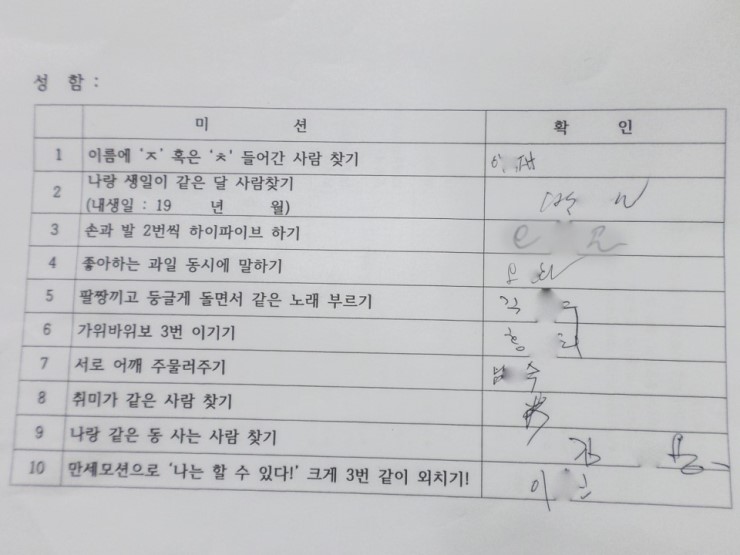 성 함 :
미 션 확 인
1 이름에 'ㅈ' 혹은 'ㅊ' 들어간 사람 찾기
2 나랑 생일이 같은 달 사람찾기
(내생일 : 19 년 월)
3 손과 발 2번씩 하이파이브 하기
4 좋아하는 과일 동시에 말하기
5 팔짱끼고 둥글게 돌면서 같은 노래 부르기
6 가위바위보 3번 이기기
7 서로 어깨 주물러주기
8 취미가 같은 사람 찾기
9 나랑 같은 동 사는 사람 찾기
10 만세모션으로 '나는 할 수 있다!' 크게 3번 같이 외치기!